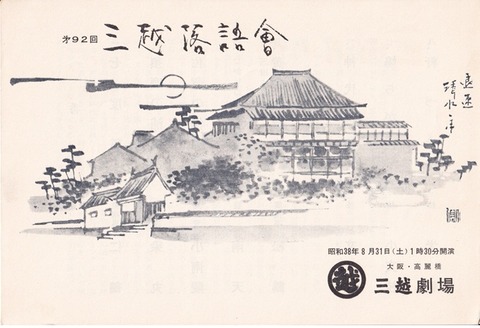 第92回 三越落語會
昭和38年8月31日(土)1時30分開演
大阪・高麗橋
越 三越劇場